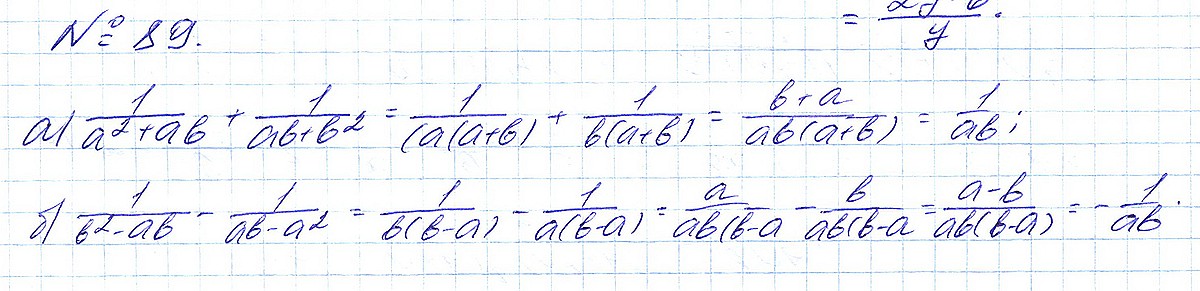 = (2y-b)/y.
№ 89.
а) 1/(a²+ab) + 1/(ab+b²) = 1/(a(a+b) + 1/(b(a+b) = (b+a)/(ab(a+b)) = 1/(ab);
б) 1/(b²-ab) - 1/(ab-a²) = 1/(b(b-a)) - 1/(a(b-a)) = a/(ab(b-a - b/(ab(b-a = (a-b)/(ab(b-a)) = - 1/(ab).